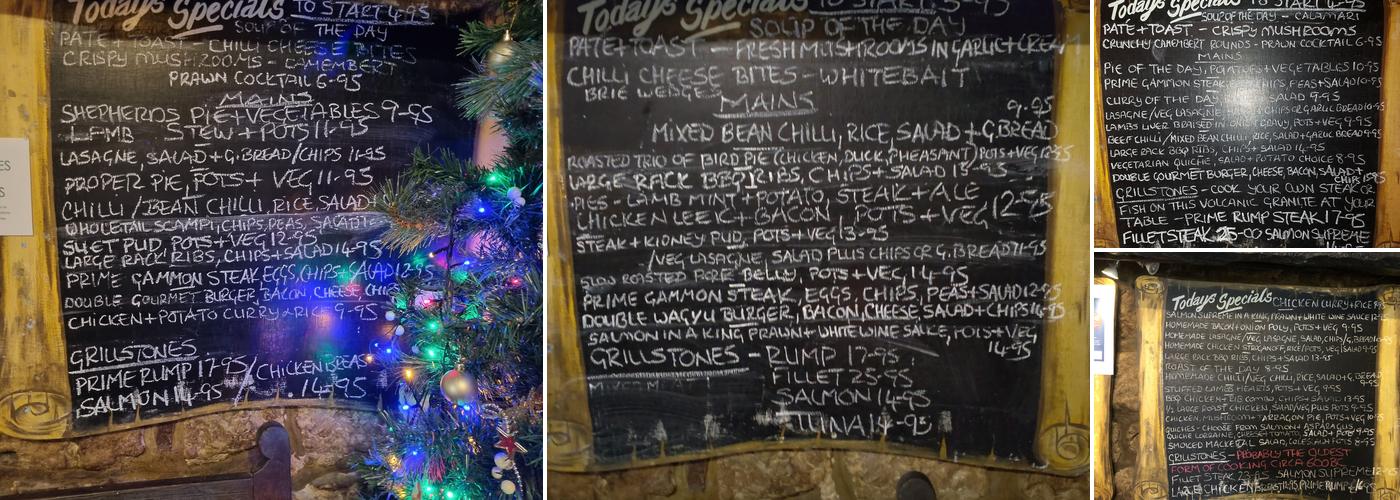 Todays Specials TO START 4-95
SOUP OF THE DAY
PATE + TOAST - CHILLI CHEESE BITES
CRISPY MUSHROOMS - CAMEMBERT
PRAWN COCKTAIL 6-95
MAINS
SHEPHERDS PIE + VEGETABLES 9-95
LAMB STEW + POTS 11-95
LASAGNE, SALAD + G.BREAD/CHIPS 11-95
PROPER PIE, POTS + VEG 11-95
CHILLI/BEAN CHILLI, RICE, SALAD +
WHOLETAIL SCAMPI, CHIPS, PEAS, SALAD
SUET PUD, POTS + VEG 12-95
LARGE RACK RIBS, CHIPS + SALAD 14-95
PRIME GAMMON STEAK EGGS, CHIPS + SALAD 12-95
DOUBLE GOURMET BURGER, BACON, CHEESE, CHIPS
CHICKEN + POTATO CURRY + RICE 9-95
GRILLSTONES
PRIME RUMP 17-95/CHICKEN BREAS
SALMON 14-95 14-95
Todays Specials TO START 5-95
SOUP OF THE DAY
PATE + TOAST - FRESH MUSHROOMS IN GARLIC + CREAM
CHILLI CHEESE BITES - WHITEBAIT
BRIE WEDGES
MAINS
9-95
MIXED BEAN CHILLI, RICE, SALAD + G.BREAD
ROASTED TRIO OF BIRD PIE (CHICKEN, DUCK, PHEASANT) POTS + VEG 12-95
LARGE RACK BBQ RIBS, CHIPS + SALAD 13-95
PIES - LAMB MINT + POTATO, STEAK + ALE
CHICKEN LEEK + BACON POTS + VEG 12-95
STEAK + KIDNEY PUD, POTS + VEG 13-95
/VEG LASAGNE, SALAD PLUS CHIPS OR G.BREAD 11-95
SLOW ROASTED PORK BELLY, POTS + VEG, 14-95
PRIME GAMMON STEAK, EGGS, CHIPS, PEAS + SALAD 12-95
DOUBLE WAGYU BURGER, BACON, CHEESE, SALAD + CHIPS 14-95
SALMON IN A KING PRAWN + WHITE WINE SAUCE, POTS + VEG
14-95
GRILLSTONES - RUMP 17-95
FILLET 25-95
SALMON 14-95
TUNA 14-95
Todays Specials TO START
SOUP OF THE DAY - CALAMARI
PATE + TOAST - CRISPY MUSHROOMS
CRUNCHY CAMEMBERT ROUNDS - PRAWN COCKTAIL 6-95
MAINS
PIE OF THE DAY, POTATOES + VEGETABLES 10-95
PRIME GAMMON STEAK, EGGS, CHIPS, PEAS + SALAD 10-95
CURRY OF THE DAY, SALAD 9-95
LASAGNE/VEG LASAGNE, CHIPS OR GARLIC BREAD 10-95
LAMBS LIVER BRAISED IN ONION GRAVY, POTS + VEG 9-95
BEEF CHILLI/MIXED BEAN CHILLI, RICE, SALAD + GARLIC BREAD 9-95
LARGE RACK BBQ RIBS, CHIPS + SALAD 14-95
VEGETARIAN QUICHE, SALAD + POTATO CHOICE 8-95
DOUBLE GOURMET BURGER, CHEESE, BACON, SALAD +
CHIPS
GRILLSTONES - COOK YOUR OWN STEAK OR
FISH ON THIS VOLCANIC GRANITE AT YOUR
TABLE - PRIME RUMP STEAK 17-95
FILLET STEAK 25-00 SALMON SUPREME
Todays Specials CHICKEN CURRY + RICE
SALMON SUPREME IN A KING PRAWN + WHITE WINE SAUCE
HOMEMADE BACON + ONION POLY, POTS + VEG 9-95
HOMEMADE LASAGNE/VEG LASAGNE, SALAD, CHIPS/G.BREAD
HOMEMADE CHICKEN STROGANOFF, RICE/POTS, VEG/SALAD 9-95
LARGE RACK BBQ RIBS, CHIPS + SALAD 13-95
ROAST OF THE DAY 8-95
HOMEMADE CHILLI/VEG CHILLI, RICE, SALAD + G.BREAD
9-95
STUFFED LAMBS HEARTS, POTS + VEG
BBQ CHICKEN + RIB COMBO, CHIPS + SALAD 13-95
1/2 LARGE ROAST CHICKEN, SALAD/VEG PLUS POTS 9-95
CHICKEN, MUSHROOM + TARRAGON PIE, POTS + VEG 10-95
QUICHES - CHOOSE FROM ASPARAGUS,
QUICHE LORRAINE, CHEESE + TOMATO, SALAD + POTS 9-95
SMOKED MACKERAL SALAD, COLESLAW POTS 8-95
GRILLSTONES - PROBABLY THE OLDEST
FORM OF COOKING CIRCA 600BC
FILLET STEAK 23-95 SALMON SUPREME
LARGE CHICKEN BREAST PRIME RUMP